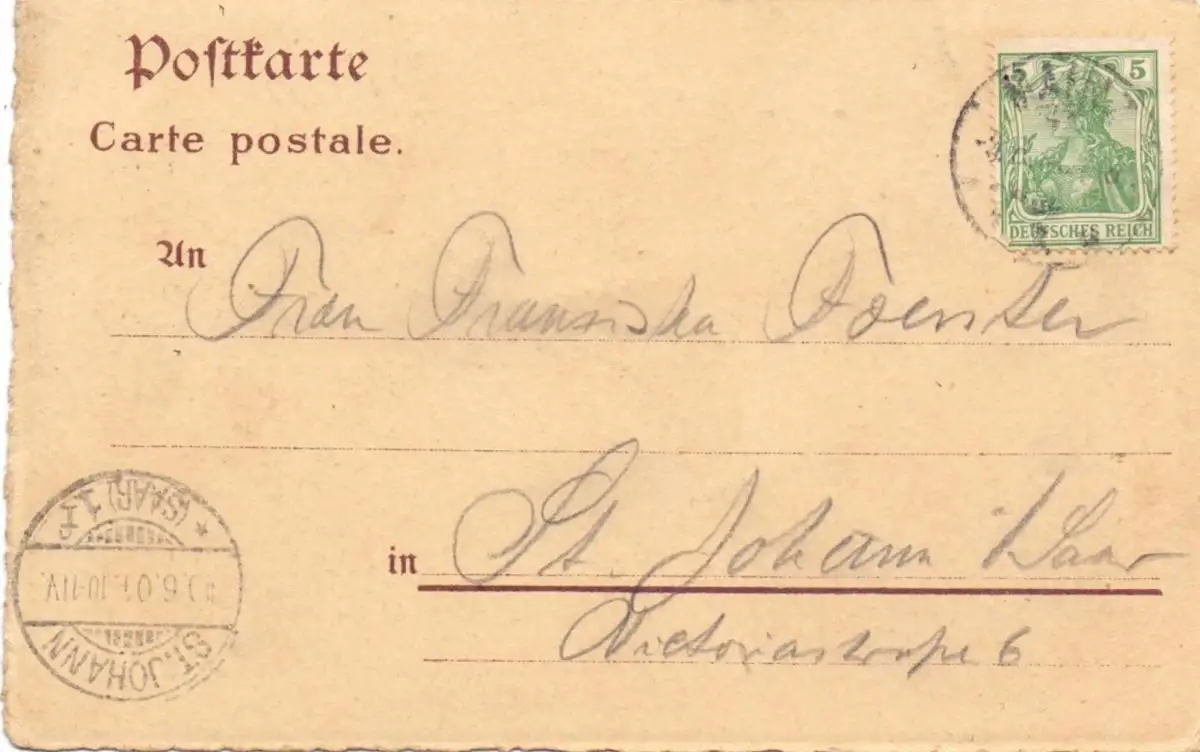 Postkarte
Carte postale.
5 5
DEUTSCHES REICH
An Frau Franziska Foerster
in St. Johann Saar
Victoriastraße 6
* (SAAR) 1 F
10-11V.
ST. JOHANN